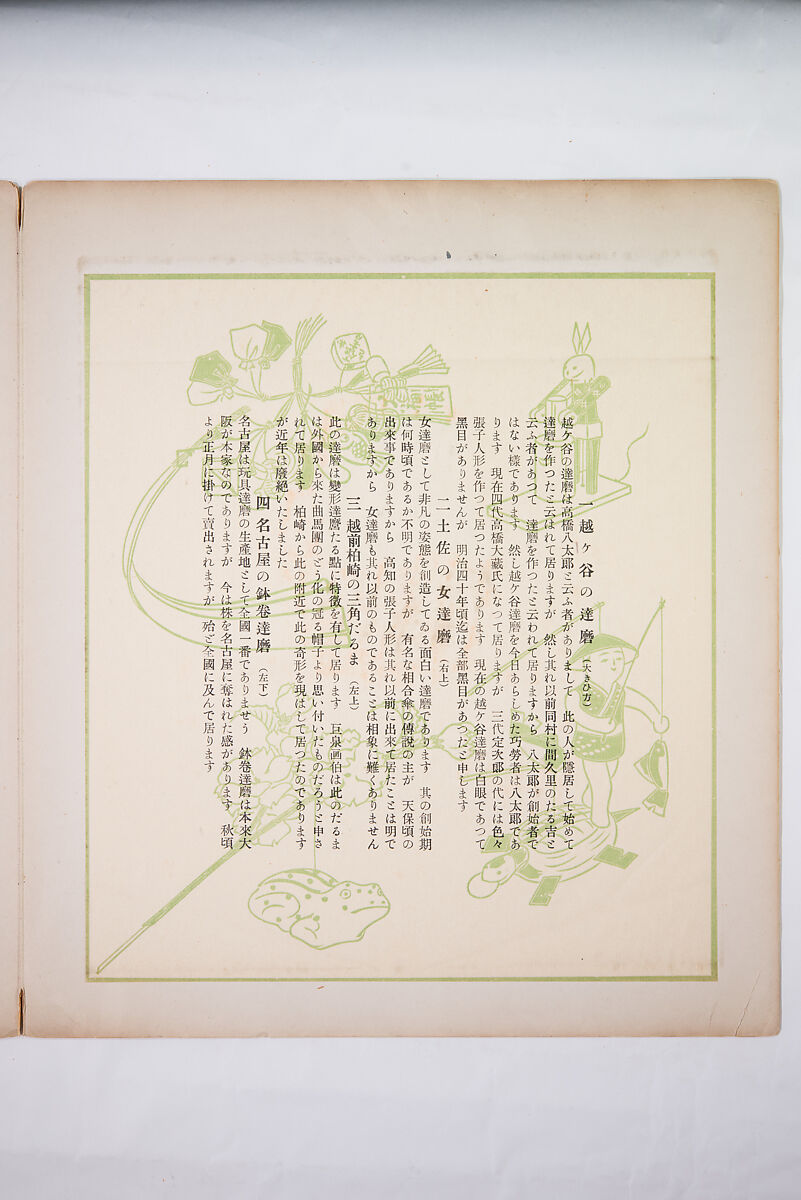 一 越ヶ谷の達磨 (大きひ方)
越ケ谷の達磨は高橋八太郎と云ふ者がありまして 此の人が隱居して始めて
達磨を作つたと云はれて居りますが 然し其れ以前同村に間久里のたる吉と
云ふ者があつて 達磨を作つたと云われて居りますから 八太郎が創始者で
はない樣であります 然し越ケ谷達磨を今日あらしめた巧勞者は八太郎であ
ります 現在四代高橋大藏氏になつて居りますが 三代定次郎の代には色々
張子人形を作つて居つたようであります 現在の越ケ谷達磨は白眼であつて
黑目がありませんが 明治四十年頃迄は全部黑目があつたと申します
二 土佐の女達磨 (右上)
女達磨として非凡の姿態を創造してゐる面白い達磨であります 其の創始期
は何時頃であるか不明でありますが 有名な相合傘の傳說の主が 天保頃の
出來事でありますから 高知の張子人形は其れ以前に出來て居たことは明で
ありますから 女達磨も其れ以前のものであることは相象に難くありません
三 越前柏崎の三角だるま (左上)
此の達磨は變形達磨たる點に特徵を有して居ります 巨泉画伯は此のだるま
は外國から來た曲馬團のどう化の冠る帽子より思い付いたものだろうと申さ
れて居ります 柏崎から此の附近で此の奇形を現はして居つたのであります
が近年は廢絕いたしました
四 名古屋の鉢卷達磨 (左下)
名古屋は玩具達磨の生產地として全國一番でありませう 鉢卷達磨は本來大
阪が本家なのでありますが 今は株を名古屋に奪はれた感があります 秋頃
より正月に掛けて賣出されますが 殆ど全國に及んで居ります